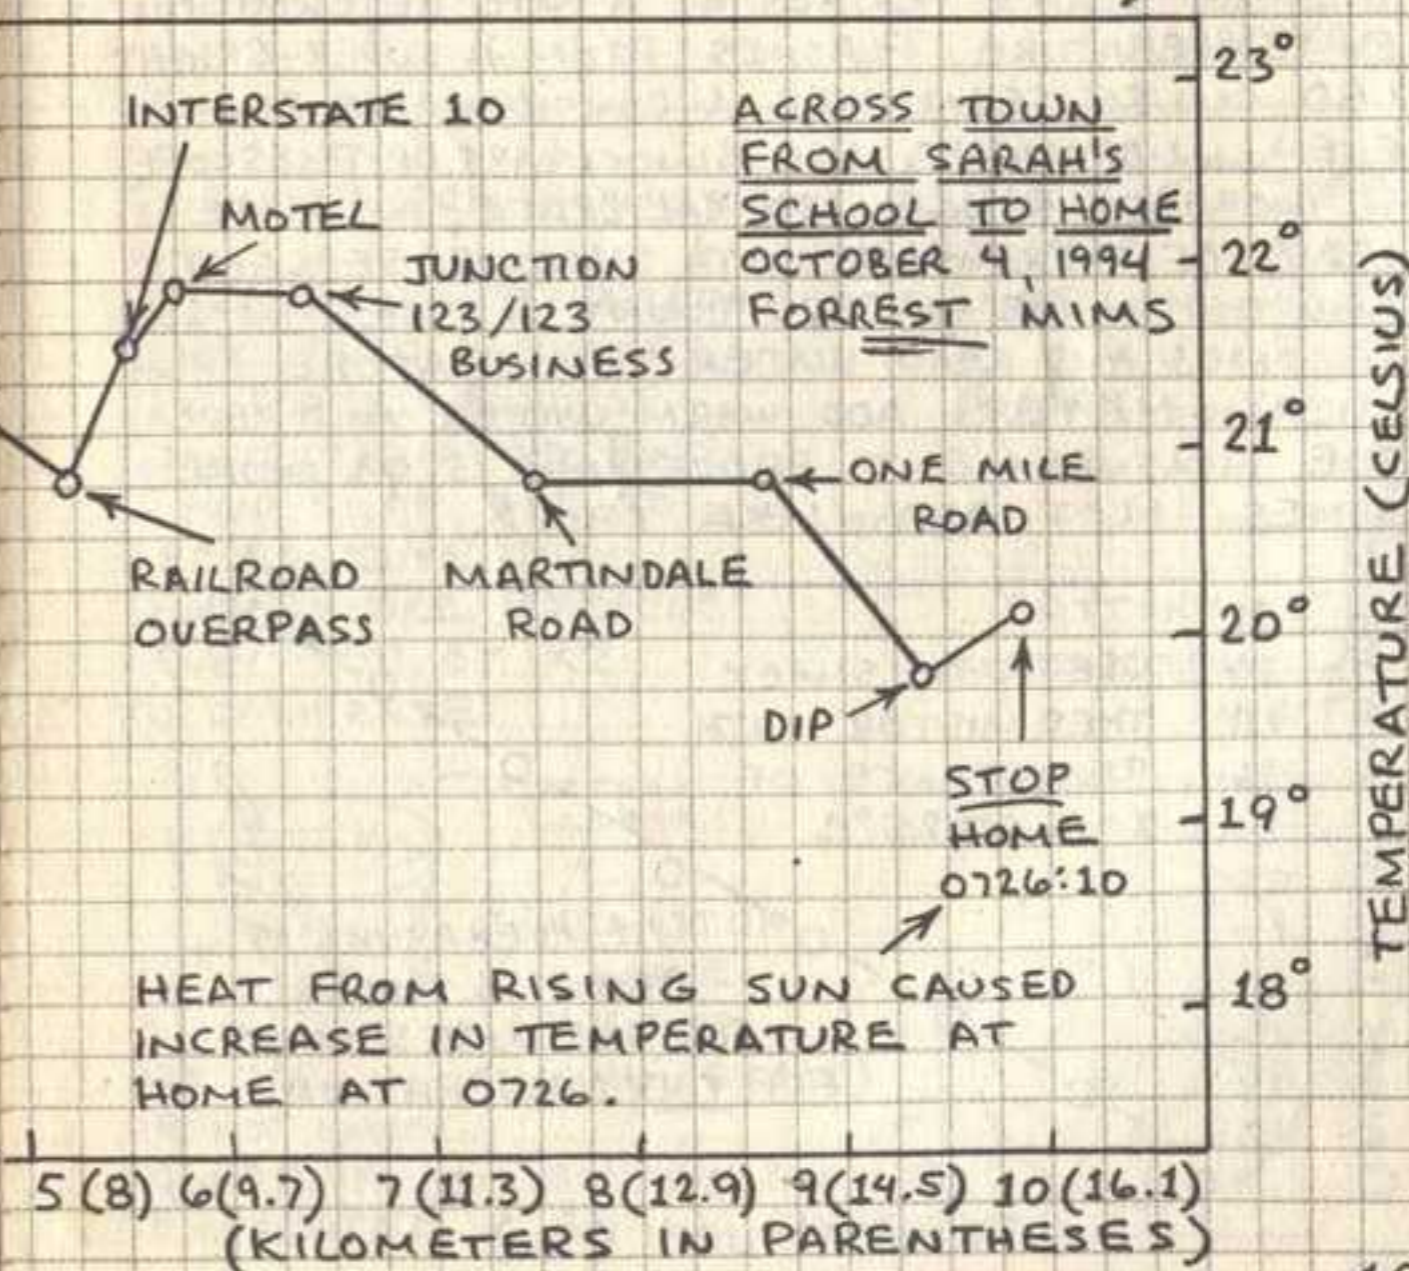 23°
INTERSTATE 10
ACROSS TOWN
FROM SARAH'S
SCHOOL TO HOME
OCTOBER 4, 1994
FORREST MIMS
MOTEL
22°
JUNCTION
123/123
BUSINESS
21°
ONE MILE
ROAD
RAILROAD
OVERPASS
MARTINDALE
ROAD
20°
DIP
STOP
HOME
0726:10
19°
HEAT FROM RISING SUN CAUSED
INCREASE IN TEMPERATURE AT
HOME AT 0726.
18°
TEMPERATURE (CELSIUS)
5 (8) 6(9.7) 7 (11.3) 8(12.9) 9(14.5) 10(16.1)
(KILOMETERS IN PARENTHESES)